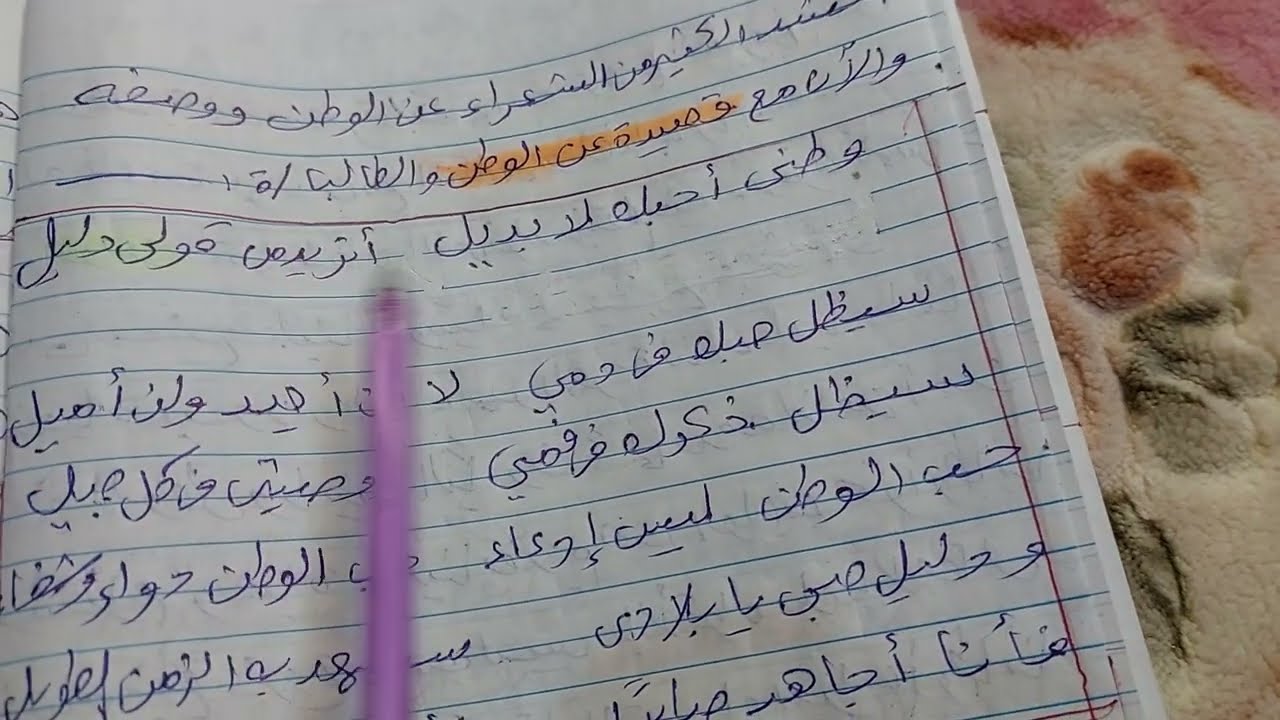 الكثير من الشعراء عن الوطن ووصفه
والأن مع قصيدة عن الوطن والطالب/ة :
وطنى أحبك لا بديل أتريد من قولى دليل
سيظل حبك فى دمي لا أحيد ولن أميل
سيظل ذكرك فى فمي ووصيتى فى كل جيل
حب الوطن ليس إدعاء الوطن دواء وشفا
ودليل حبى يا بلادى سيشهد به الزمن الطويل
فأنا أجاهد صابراً